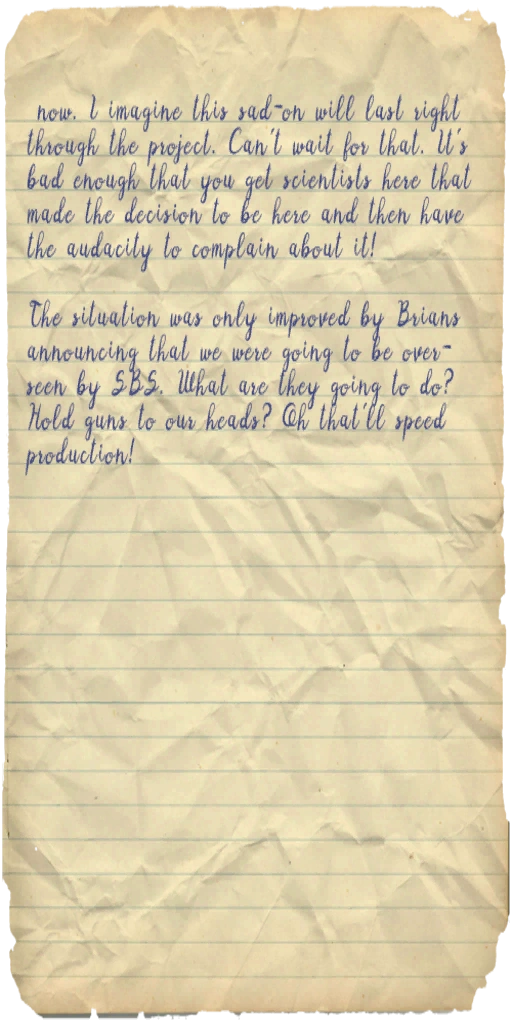 now. I imagine this sad-on will last right
through the project. Can't wait for that. It's
bad enough that you get scientists here that
made the decision to be here and then have
the audacity to complain about it!
The situation was only improved by Brians
announcing that we were going to be over-
seen by SBS. What are they going to do?
Hold guns to our heads? Oh that'll speed
production!